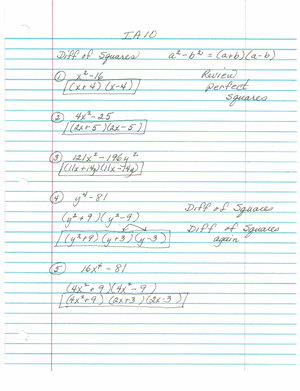 IA10
Diff of Squares a² - b² = (a+b)(a-b)
① x² - 16 Review
(x+4)(x-4) perfect
squares
② 4x² - 25
(2x+5)(2x-5)
③ 121x² - 196y²
(11x+14y)(11x-14y)
④ y⁴ - 81
(y²+9)(y²-9) Diff of Squares
(y²+9)(y+3)(y-3) Diff of Squares
again
⑤ 16x⁴ - 81
(4x²+9)(4x²-9)
(4x²+9)(2x+3)(2x-3)